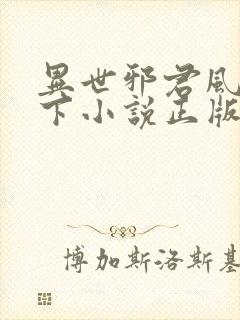 異世邪君風
下小說正版
博加斯洛斯基